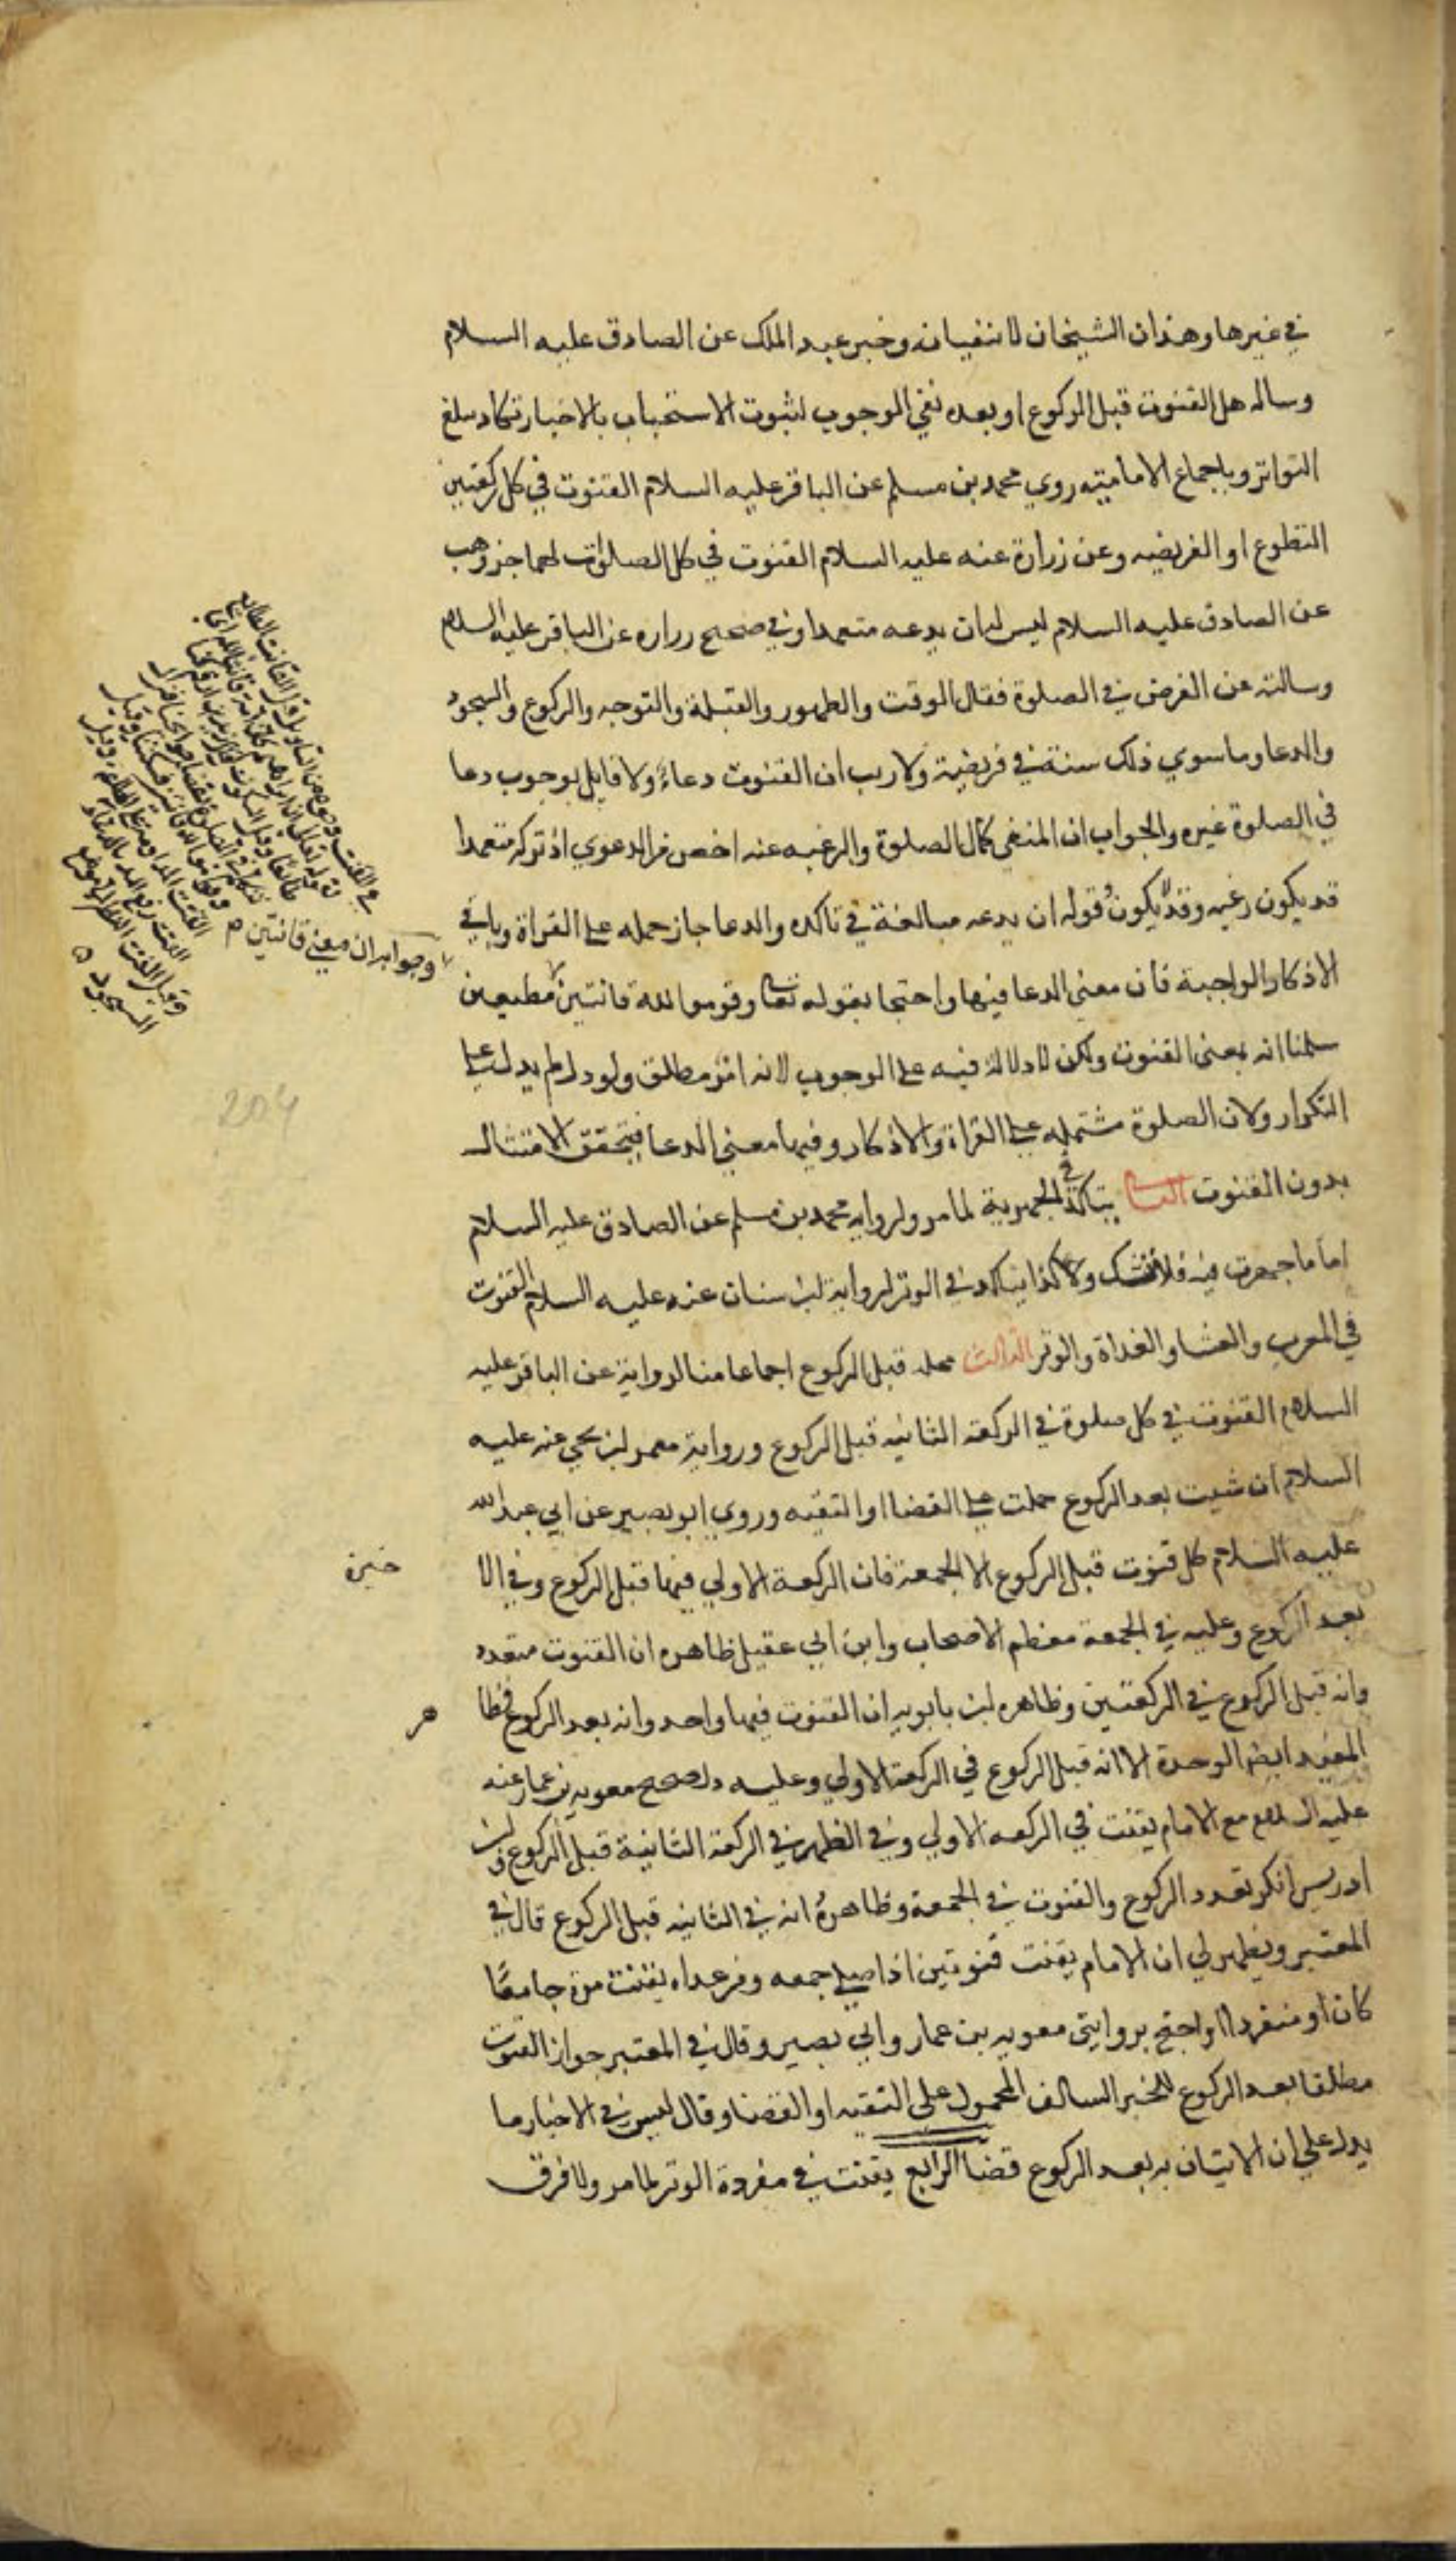 في غيرها وهذان الشيخان لا ننفيانه وخبر عبد الملك عن الصادق عليه السلام
وساله هل القنوت قبل الركوع او بعده نفي الوجوب لثبوت الاستحباب بالاخبار تكاد تبلغ
التواتر وباجماع الامامية روي محمد بن مسلم عن الباقر عليه السلام القنوت في كل ركعتين
التطوع او الفريضه وعن زرارة عنه عليه السلام القنوت في كل الصلوات وهب
عن الصادق عليه السلام ليس له ان يدعه متعمدا وفي صحيح زراره عن الباقر عليه السلام
وسالته عن الفرض في الصلوة فقال الوقت والطهور والقبلة والتوجه والركوع والسجود
والدعا وما سوي ذلك سنة في فريضة ولا ريب ان القنوت دعاء ولا قايل بوجوب دعا
في الصلوة غيره والجواب ان المنفي كمال الصلوة والرغبه عنه اخص من الدعوي اذ تركه متعمدا
قد يكون رغبه وقد لا يكون وقوله ان يدعه مبالغة في تاكده والدعا جاز حمله علي القراة وباقي
الاذكار الواجبة فان معني الدعا فيها واحتجا بقوله تعالي وقوموا لله قانتين مطيعين
سلمنا انه بمعني القنوت ولكن لا دلالة فيه علي الوجوب لانه امر مطلق ولو دل لم يدل علي
التكرار ولان الصلوة مشتمله علي القراة والاذكار وفيها معني الدعا فيتحقق الامتثال
بدون القنوت الثاني يتاكد في الجهرية لما مر ولروايه محمد بن مسلم عن الصادق عليه السلام
اما ما جهرت فيه فلا تشك وكذا يتاكد في الوتر لرواية ابن سنان عنه عليه السلام القنوت
في المغرب والعشا والغداة والوتر الثالث محله قبل الركوع اجماعا منا لرواية عن الباقر عليه
السلام القنوت في كل صلوة في الركعة الثانيه قبل الركوع ورواية معمر بن يحيي عنه عليه
السلام ان شيت بعد الركوع حملت علي القضا او التقيه وروي ابو بصير عن ابي عبد الله
عليه السلام كل قنوت قبل الركوع الا الجمعة فان الركعة الاولي فيها قبل الركوع وفي الا
خيرة
بعد الركوع وعليه في الجمعة معظم الاصحاب وابن ابي عقيل ظاهره ان القنوت متعدد
وانه قبل الركوع في الركعتين وظاهره ابن بابويه ان القنوت فيها واحد وانه بعد الركوع فظا
هر
المفيد ايضا الوحدة الا انه قبل الركوع في الركعة الاولي وعليه دل صحيح معويه بن عمار عنه
عليه السلام مع الامام يقنت في الركعه الاولي وفي الظهر في الركعة الثانية قبل الركوع وابن
ادريس انكر تعدد الركوع والقنوت في الجمعة وظاهره انه في الثانيه قبل الركوع قال في
المعتبر ويظهر لي ان الامام يقنت قنوتين اذا صلي جمعه ومن عداه يقنت مرة جامعا
كان او منفردا واحتج بروايتي معويه بن عمار وابي بصير وقال في المعتبر جواز القنوت
مطلقا بعد الركوع للخبر السالف المحمول علي التقيه او القضا وقال ليس في الاخبار ما
يدل علي ان الاتيان به بعد الركوع قضا الرابع يقنت في مفردة الوتر لما مر ولا فرق
وجوابه ان معني قانتين م
السجود
204